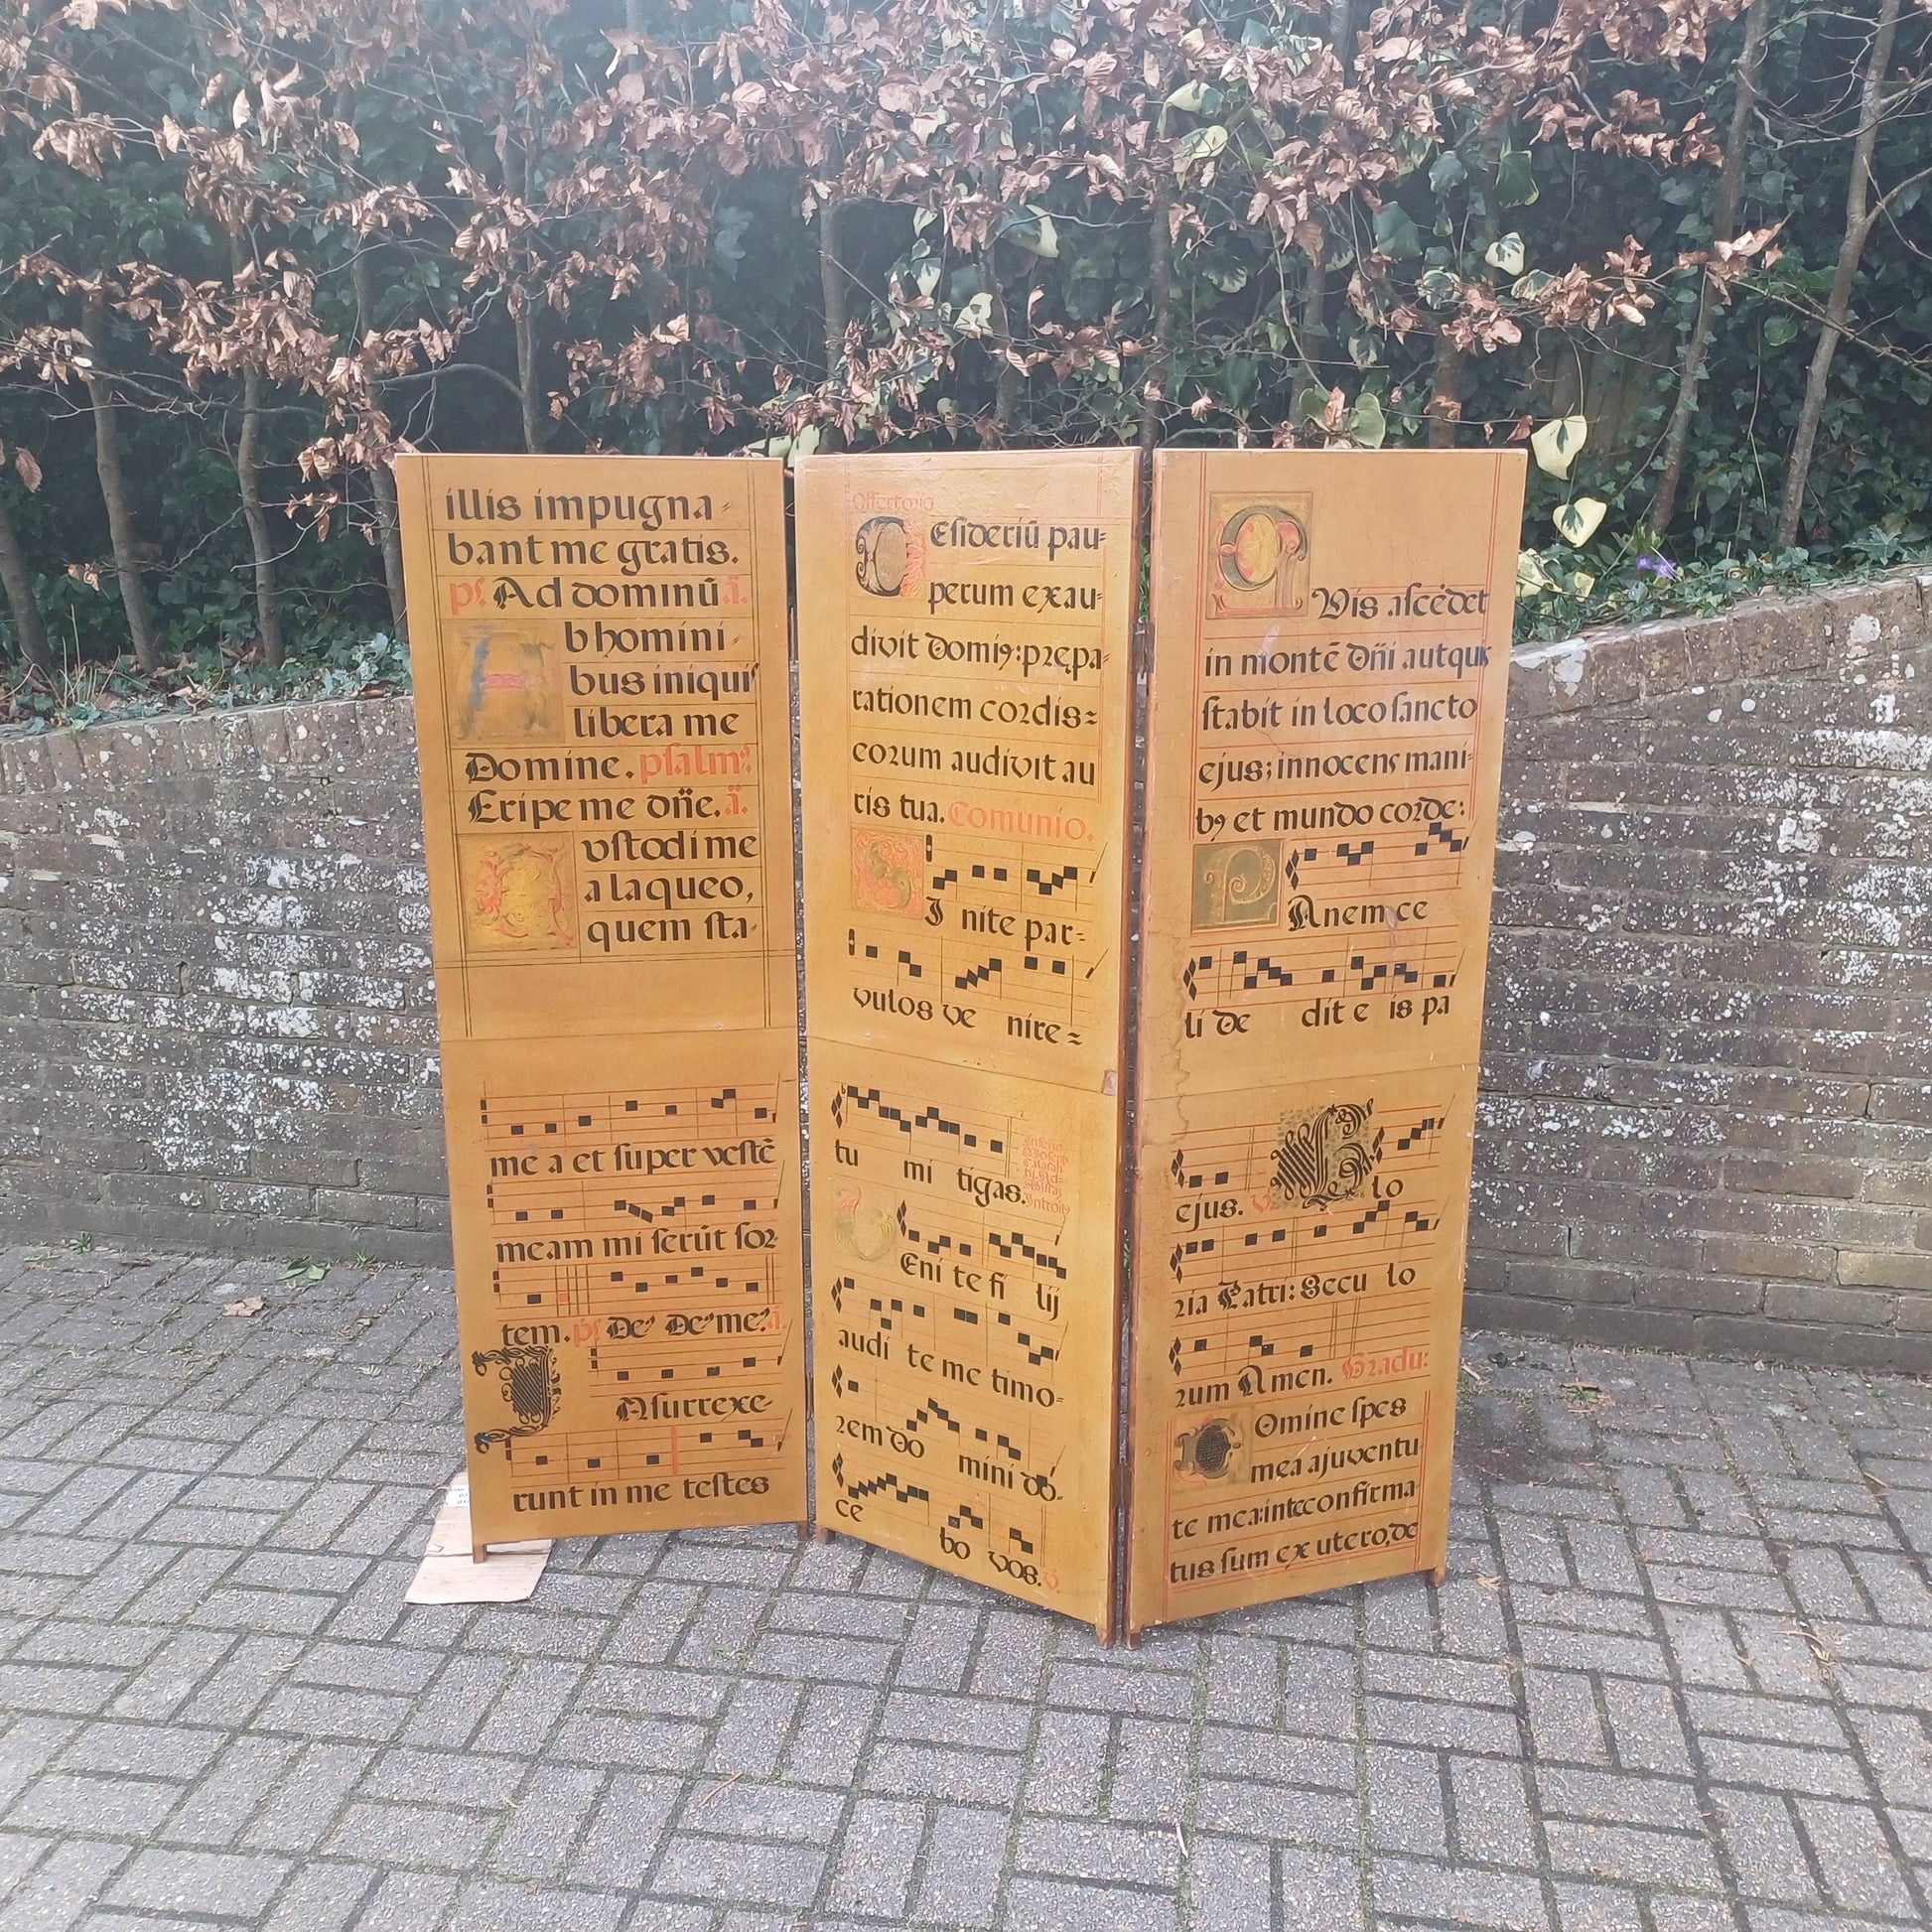 illis impugna=
bant me gratis.
ps. Ad dominū ā.
b homini=
bus iniquis
libera me
Domine. psalm9.
Eripe me dn̄e. ā.
C
vstodi me
a laqueo,
quem sta-
me a et super vestē
meam mi serūt sor
tem. ps De9 De9 me9. ā.
I
Nsurrexe-
runt in me testes
Offertorio
D
Esideriū pau=
perum exau-
divit Domi9: prępa-
rationem cordis=
eorum audivit au
ris tua. Comunio.
S
I nite par=
vulos ve nire=
tu mi tigas.
Introit9
V
Eni te fi lij
audi te me timo=
rem do mini do-
ce bo vos. v.
Q
Vis ascēdet
in montē dn̄i aut quis
stabit in loco sancto
ejus; innocens mani=
b9 et mundo corde:
P
Anem ce
li de dit e is pa
ejus. v G lo
ria Patri: Secu lo
rum Amen. Gradu:
D
Omine spes
mea a juventu
te mea: in te confirma
tus sum ex utero, de